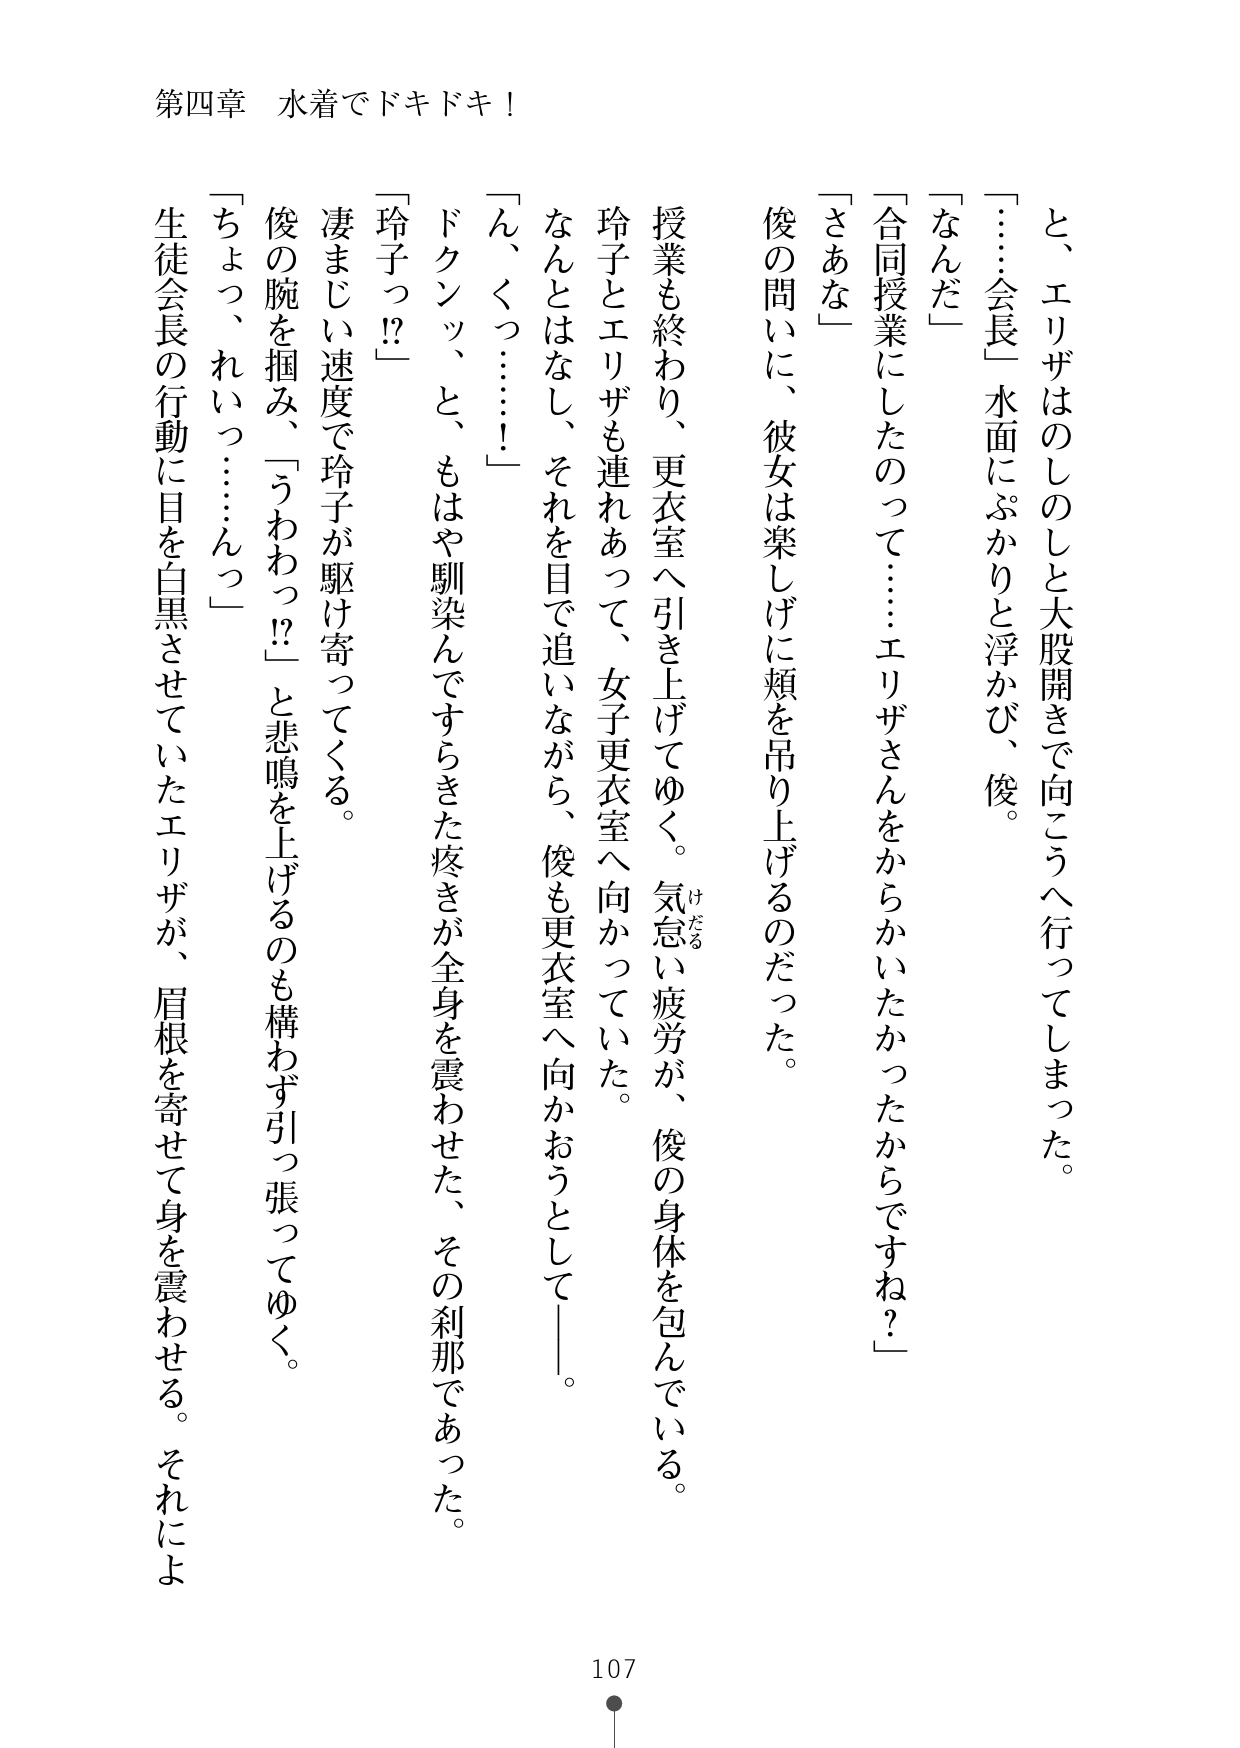 第四章　水着でドキドキ！
と、エリザはのしのしと大股開きで向こうへ行ってしまった。
「……会長」水面にぷかりと浮かび、俊。
「なんだ」
「合同授業にしたのって……エリザさんをからかいたかったからですね？」
「さあな」
俊の問いに、彼女は楽しげに頬を吊り上げるのだった。
授業も終わり、更衣室へ引き上げてゆく。気怠い疲労が、俊の身体を包んでいる。
けだる
玲子とエリザも連れあって、女子更衣室へ向かっていた。
なんとはなし、それを目で追いながら、俊も更衣室へ向かおうとして――。
「ん、くっ……！」
ドクンッ、と、もはや馴染んですらきた疼きが全身を震わせた、その刹那であった。
「玲子っ!?」
凄まじい速度で玲子が駆け寄ってくる。
俊の腕を掴み、「うわわっ!?」と悲鳴を上げるのも構わず引っ張ってゆく。
「ちょっ、れいっ……んっ」
生徒会長の行動に目を白黒させていたエリザが、眉根を寄せて身を震わせる。それによ
107